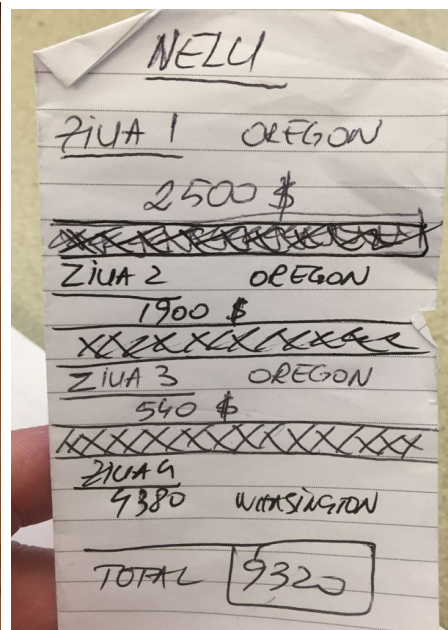 NELU
ZIUA 1 OREGON
2500 $
ZIUA 2 OREGON
1900 $
ZIUA 3 OREGON
540 $
ZIUA 4
4380 WHASINGTON
TOTAL 9320